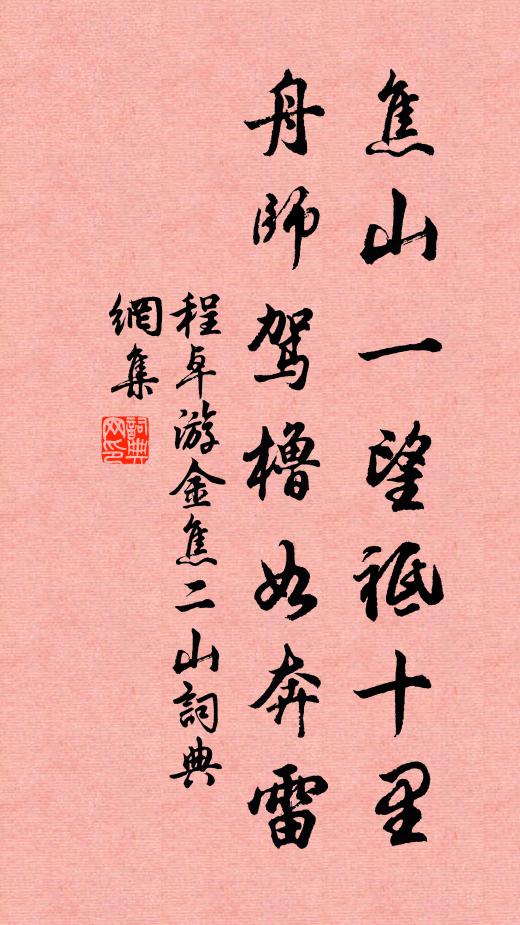 焦山一望祗十里
舟師駕櫓如奔雷
程卓游金焦二山詞典
網集
詞典網印